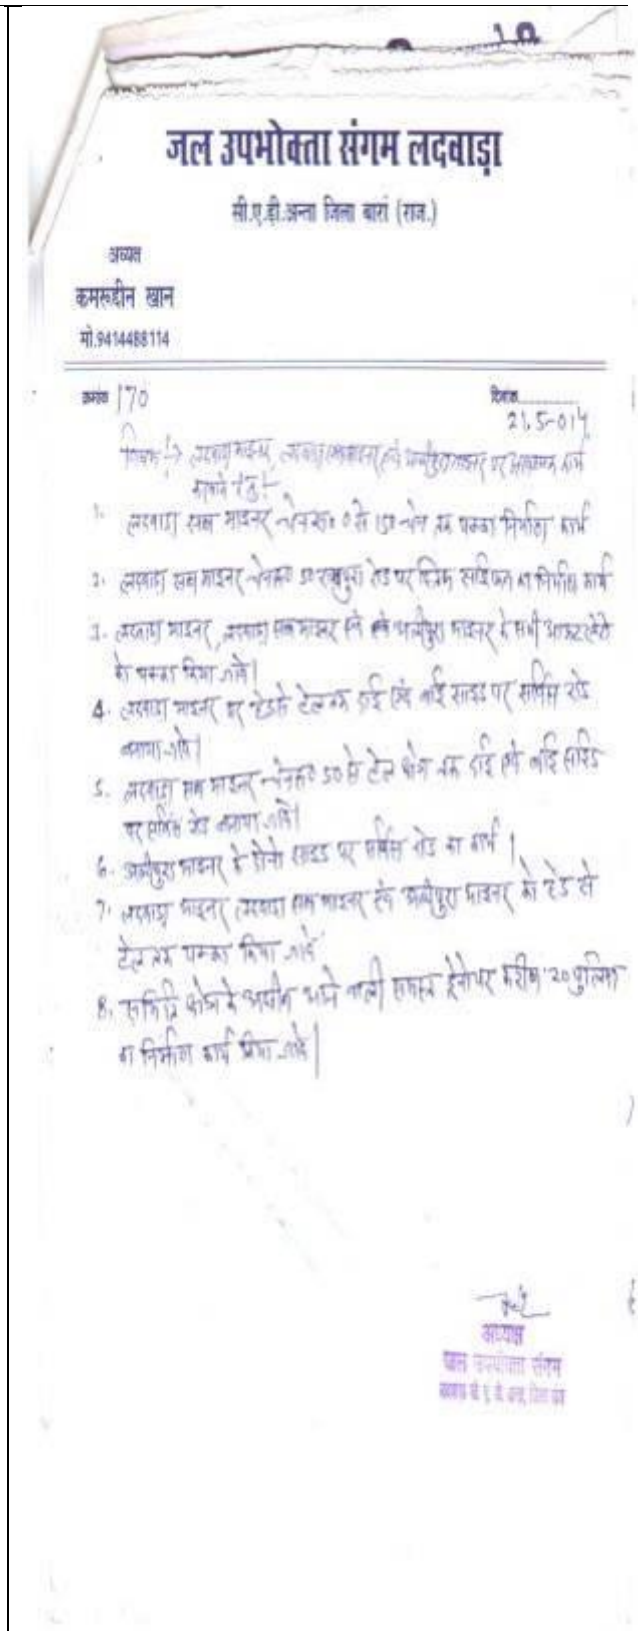 जल उपभोक्ता संगम लदवाड़ा
सी.ए.डी.अन्ता जिला बारां (राज.)
अध्यक्ष
कमरूद्दीन खान
मो.9414488114
क्रमांक 170
दिनांक
21.5-014
विषय:- लदवाड़ा माइनर, लदवाड़ा सब माइनर एवं अलीपुरा माइनर पर आवश्यक कार्य
करवाने हेतु।-
1. लदवाड़ा सब माइनर चेन सं० 0 से 150 चेन तक पक्का निर्माण कार्य
2. लदवाड़ा सब माइनर चेन सं० 50 रोड पर साईफन का निर्माण कार्य
3. लदवाड़ा माइनर, लदवाड़ा सब माइनर एवं अलीपुरा माइनर के सभी आउटलेटो
को पक्का किया जावे।
4. लदवाड़ा माइनर पर हेड से टेल तक दाई एवं बाई साइड पर सर्विस रोड
बनाया जावे।
5. लदवाड़ा सब माइनर चेन सं० 50 से टेल तक दाई एवं बाई साईड
पर सर्विस रोड बनाया जावे।
6. अलीपुरा माइनर के दोनो साइड पर सर्विस रोड का कार्य।
7. लदवाड़ा माइनर, लदवाड़ा सब माइनर एवं अलीपुरा माइनर को हेड से
टेल तक पक्का किया जावे
8. समिति क्षेत्र के अधीन आने वाली समस्त ड्रेनो पर करीब 20 पुलिया
का निर्माण कार्य किया जावे।
अध्यक्ष
जल उपभोक्ता संगम